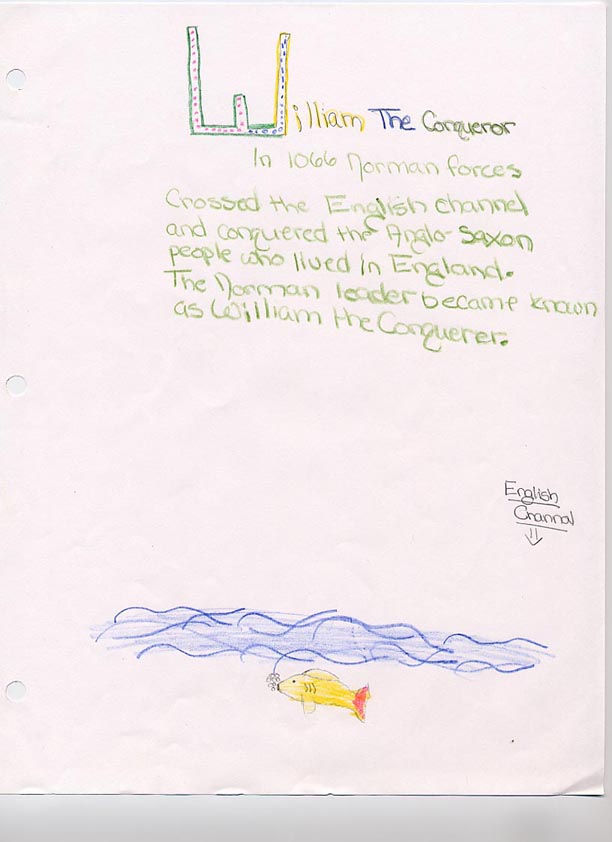 William The Conqueror
In 1066 Norman forces
Crossed the English channel
and conquered the Anglo-Saxon
people who lived in England.
The Norman leader became known
as William the Conquerer.
English
Channal